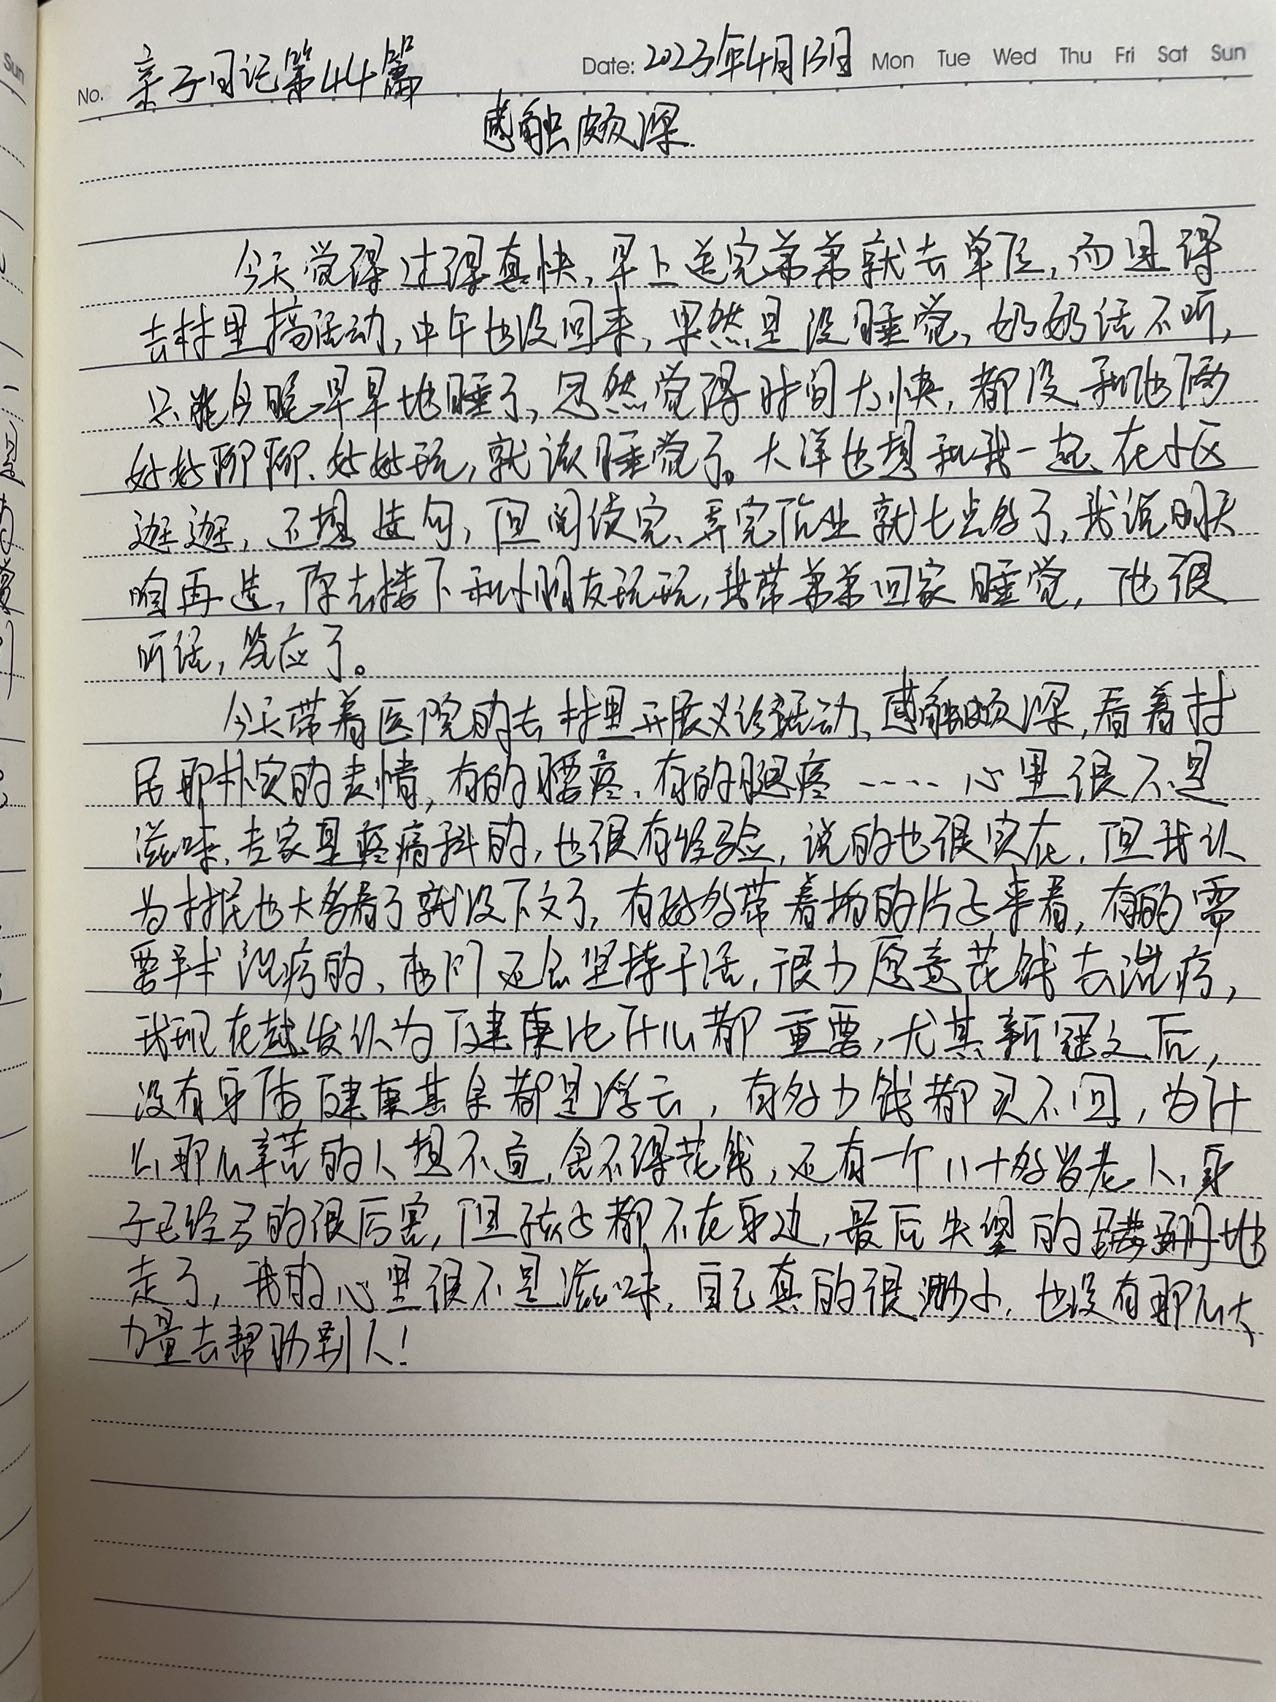 No. 亲子日记第44篇 Date: 2023年4月13日 Mon Tue Wed Thu Fri Sat Sun
感触颇深.
今天觉得过得真快,早上送完弟弟就去单位,而且得
去村里搞活动,中午也没回来,果然是没睡觉,奶奶话不听,
只能今晚早早地睡了,忽然觉得时间太快,都没和他俩
好好聊聊、好好玩,就该睡觉了。大洋也想和我一起在小区
逛逛,不想造句,但阅读完、弄完作业就七点多了,我说明天
咱再造,你去楼下和小朋友玩玩,我带弟弟回家睡觉,他很
听话,答应了。
今天带着医院的去村里开展义诊活动,感触颇深,看着村
民那朴实的表情,有的腰疼,有的腿疼……心里很不是
滋味,专家是疼痛科的,也很有经验,说的也很实在,但我认
为村民也大多看了就没下文了,有好多带着拍的片子来看,有的需
要手术治疗的,他们还会坚持干活,很少愿意花钱去治疗,
我现在越发认为健康比什么都重要,尤其新冠之后,
没有身体健康其余都是浮云,有多少钱都买不回,为什
么那么辛苦的人想不通,舍不得花钱,还有一个八十多岁老人,身
子已经弓的很厉害,但孩子都不在身边,最后失望的蹒跚地
走了,我的心里很不是滋味,自己真的很渺小,也没有那么大
力量去帮助别人!
Sun